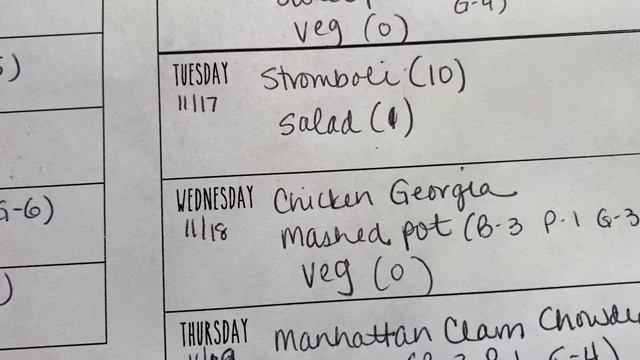 G-4)
veg (0)
TUESDAY Stromboli (10)
11/17 Salad (1)
G-6)
WEDNESDAY Chicken Georgia
11/18 mashed pot (B-3 P-1 G-3
veg (0)
THURSDAY Manhattan Clam Chowde
G-4)